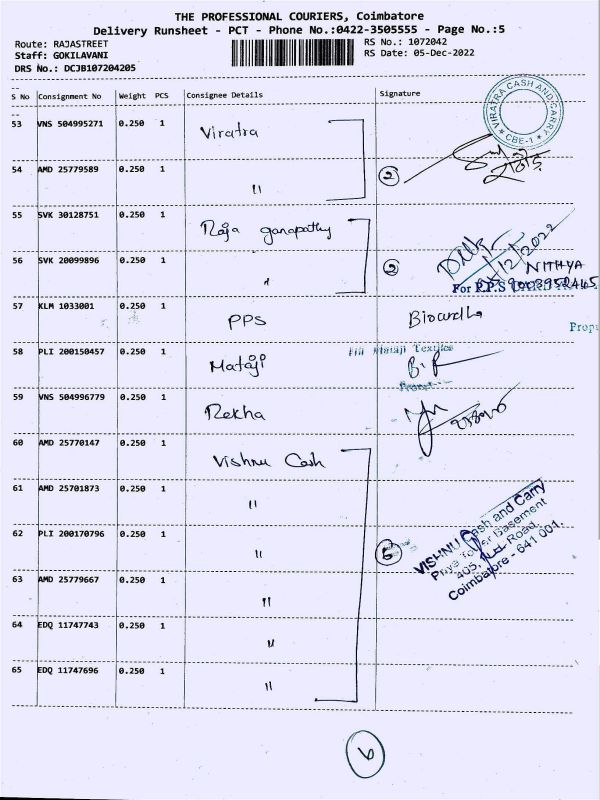 THE PROFESSIONAL COURIERS, Coimbatore
Delivery Runsheet - PCT - Phone No.:0422-3505555 - Page No.:5
Route: RAJASTREET
RS No.: 1072042
Staff: GOKILAVANI
RS Date: 05-Dec-2022
DRS No.: DCJB107204205
S No Consignment No Weight PCS Consignee Details Signature
VIRATRA CASH AND CARRY
★ CBE-1 ★
53 VNS 504995271 0.250 1 Viratra
54 AMD 25779589 0.250 1 " 2
55 SVK 30128751 0.250 1 Raja ganapathy
56 SVK 20099896 0.250 1 " 2
/12/2022
NITHYA
9003952465
For P.P.S
57 KLM 1033001 0.250 1 PPS
Prop
58 PLI 200150457 0.250 1 Mataji
Mataji Textiles
59 VNS 504996779 0.250 1 Rekha
60 AMD 25770147 0.250 1 Vishnu Cash
61 AMD 25701873 0.250 1 "
62 PLI 200170796 0.250 1 " 6
VISHNU Cash and Carry
Basement
405, Road,
Coimbatore - 641 001.
63 AMD 25779667 0.250 1 "
64 EDQ 11747743 0.250 1 "
65 EDQ 11747696 0.250 1 "
6